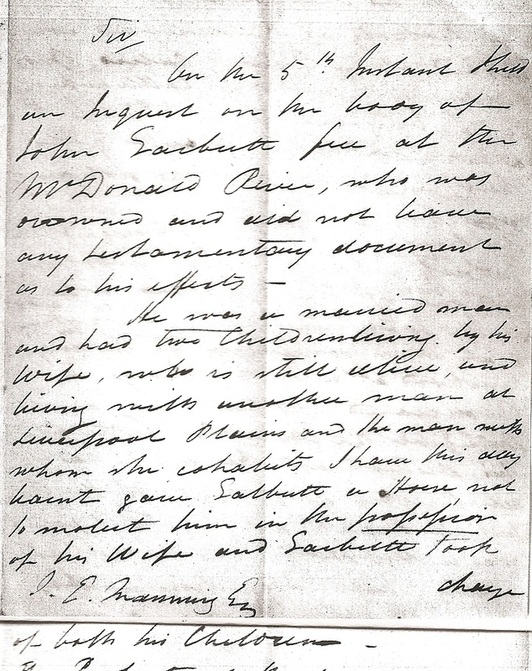 Sir,
On the 5th Instant I held
an Inquest on the body of
John Garbutt free at the
McDonald River, who was
drowned and did not leave
any testamentary document
as to his effects -
He was a married man
and had two Children living by his
Wife, who is still alive, and
living with another man at
Liverpool Plains and the man with
whom she cohabits I have this day
learnt gave Garbutt a Horse not
to molest him in the possession
of his Wife and Garbutt took
J. E. Manning Esq
charge
of both his Children -